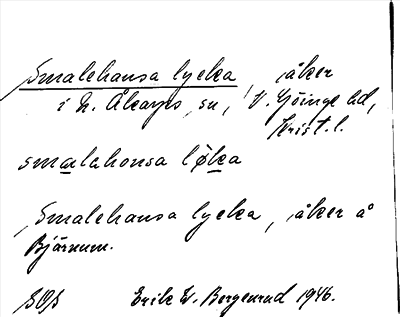 Smalehansa lycka, åker
i N. Åkarps sn, V. Göinge hd,
Krist. l.
smalahonsa løka
Smalehansa lycka, åker å
Bjärnum.
Erik W. Bergenrud 1946.